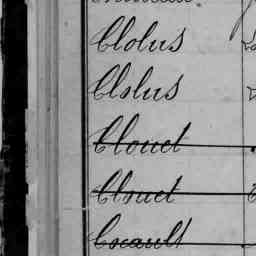 Clolus
Clolus
Clouet
Clouet
Cocault